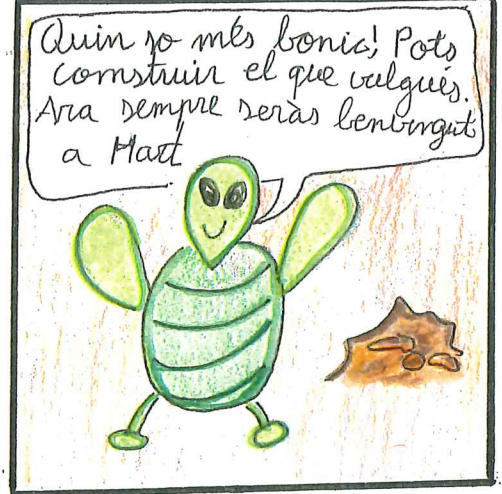 Quin so més bonic! Pots
construir el que vulguis.
Ara sempre seràs benvingut
a Mart